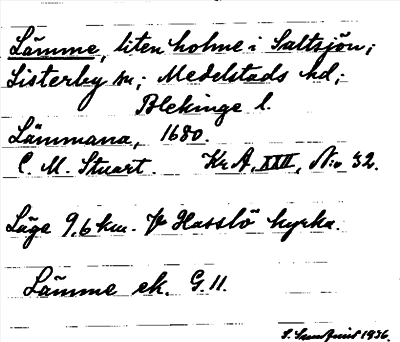 Lämme, liten holme i Saltsjön;
Listerby sn; Medelstads hd;
Blekinge l.
Lämmana, 1680.
C. M. Stuart. Kr A, XXII, N:o 32.
Läge 9,6 km. V Hasslö kyrka.
Lämme ek. G. 11.
S. Sundqvist 1936.